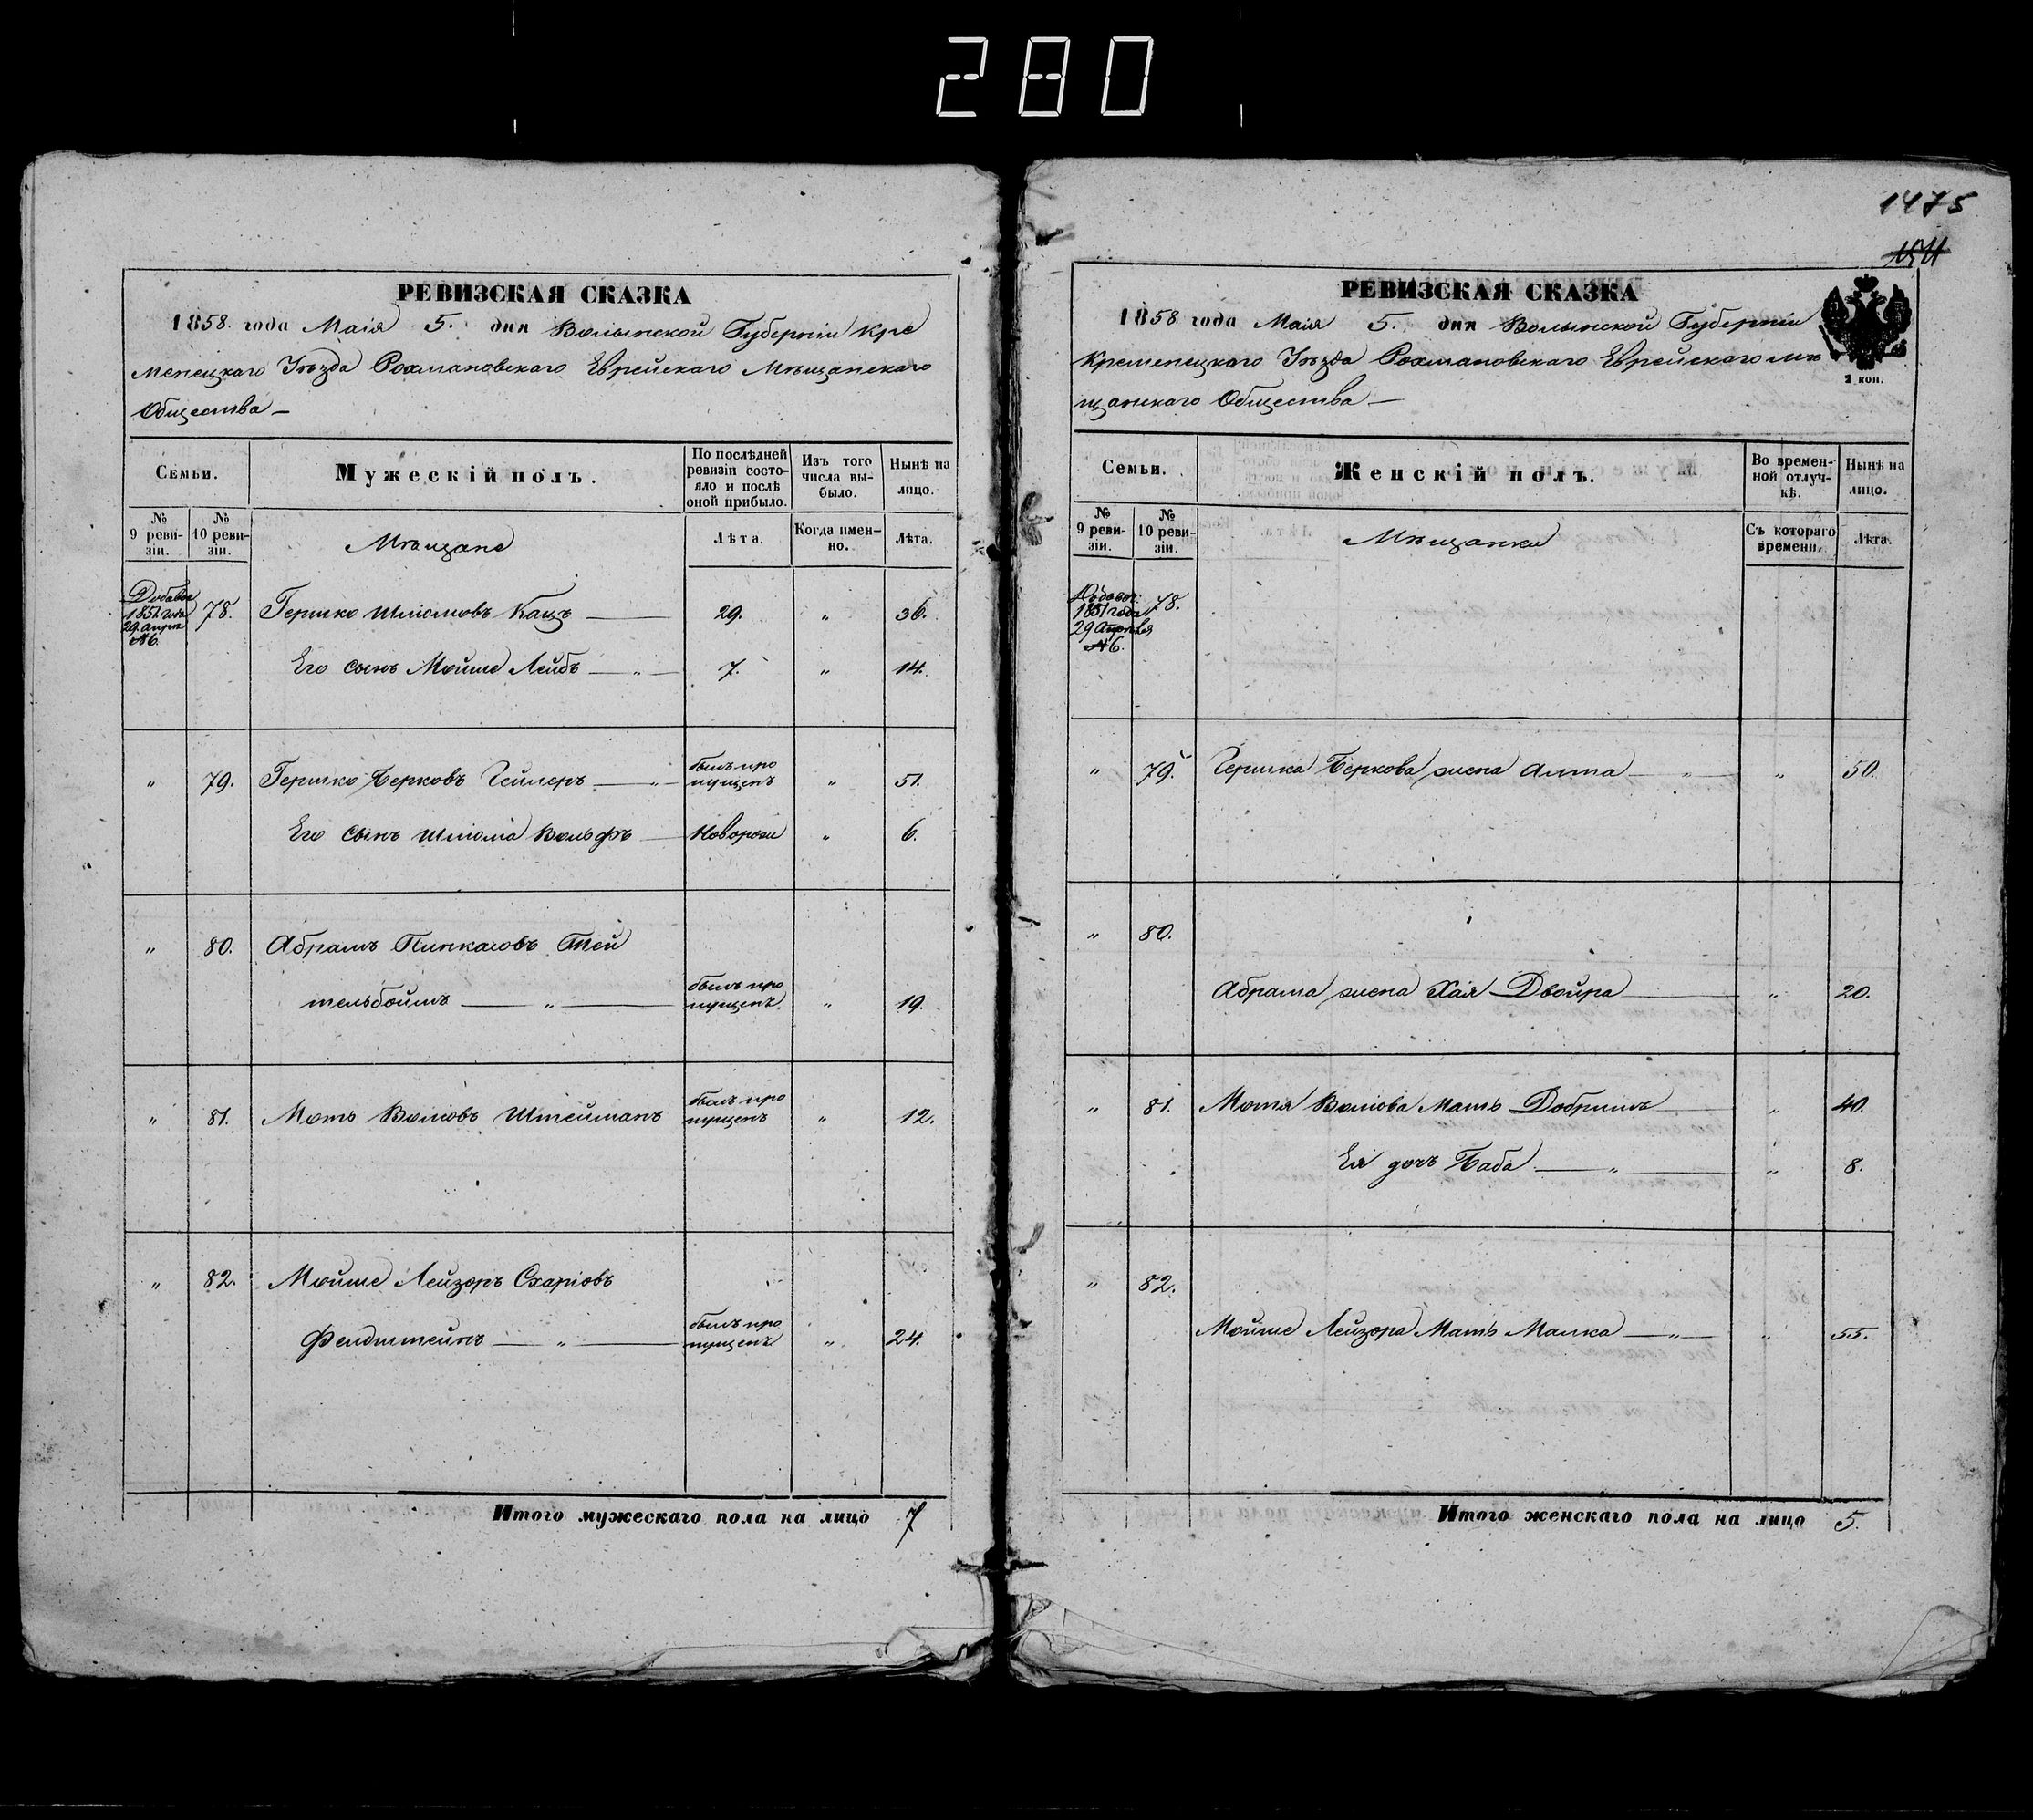 280
РЕВИЗСКАЯ СКАЗКА
1858. года Маія 5. дня Волынской Губерніи Кре
менецкаго Уѣзда Рохмановскаго Еврейскаго Мѣщанскаго
Общества —
Семьи.
Мужескій полъ.
По послѣдней ревизіи состояло и послѣ оной прибыло.
Изъ того числа выбыло.
Нынѣ на лицо.
№ 9 ревизіи.
№ 10 ревизіи.
Мѣщане
Лѣта.
Когда именно.
Лѣта.
Добавоч 1851 года 29 апрѣ №6. 78. Гершко Шліомовъ Кацъ — 29. „ 36.
Его сынъ Мойше Лейбъ — „ — 7. „ 14.
„ 79. Гершко Берковъ Гейлеръ — „ — былъ пропущенъ „ 51.
Его сынъ Шліома Вольфъ — Новорож „ 6.
„ 80. Абрамъ Пинкасовъ Тей
тельбоймъ — „ — былъ пропущенъ „ 19.
„ 81. Моть Воліовъ Штейманъ былъ пропущенъ „ 12.
„ 82. Мойше Лейзоръ Схаріовъ
Фелдштейнъ — „ — былъ пропущенъ „ 24.
Итого мужескаго пола на лицо 7
1475
РЕВИЗСКАЯ СКАЗКА
1858. года Маія 5. дня Волынской Губерніи
Кременецкаго Уѣзда Рохмановскаго Еврейскаго мѣ
щанскаго Общества —
2 коп.
Семьи.
Женскій полъ.
Во временной отлучкѣ.
Нынѣ на лицо.
№ 9 ревизіи.
№ 10 ревизіи.
Мѣщанки
Съ котораго времени.
Лѣта.
Добавоч. 1851 года 29 Апрѣля №6. 78.
„ 79. Гершка Беркова жена Алта — „ — „ 50.
„ 80.
Абрама жена Хая Двойра — „ 20.
„ 81. Мотя Воліова Мать Добришъ — „ 40.
Ея дочь Баба — „ — „ 8.
„ 82.
Мойше Лейзора Мать Малка — „ — „ 55.
Итого женскаго пола на лицо 5.